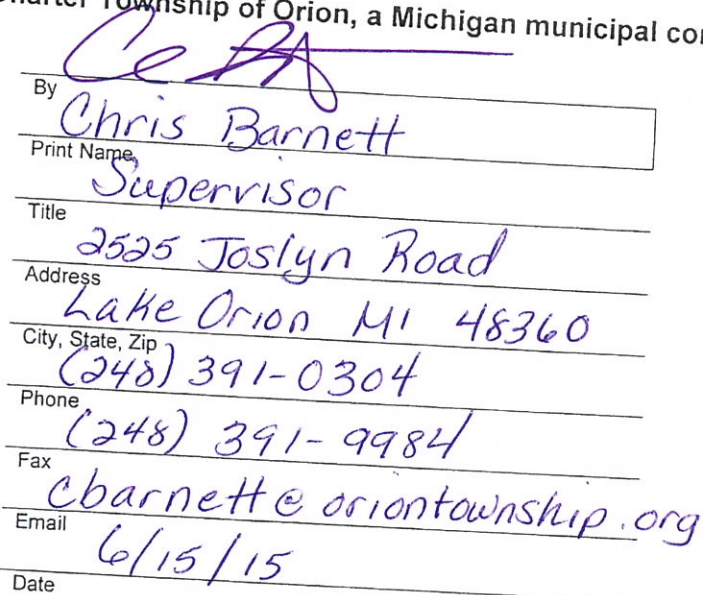 Charter Township of Orion, a Michigan municipal
By
Chris Barnett
Print Name
Supervisor
Title
2525 Joslyn Road
Address
Lake Orion MI 48360
City, State, Zip
(248) 391-0304
Phone
(248) 391-9984
Fax
cbarnett@oriontownship.org
Email
6/15/15
Date